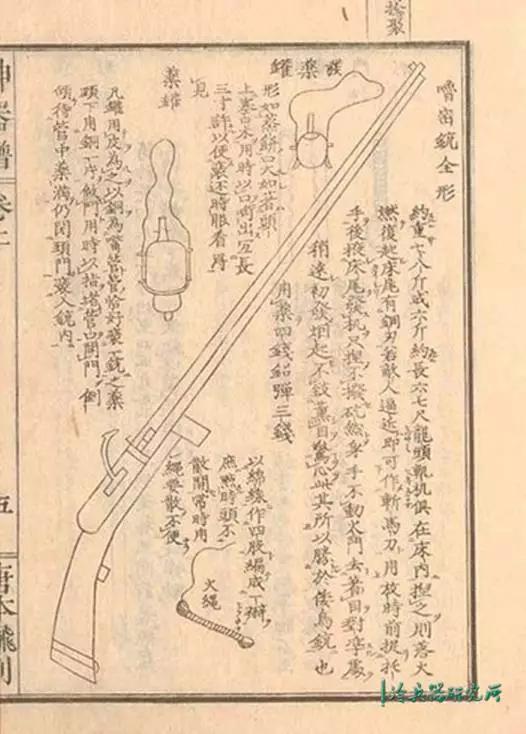 嚕嘧銃全形
約重七八斤或六斤約長六七尺龍頭軌机俱在床內捏之則落火
燃復起床尾有鋼刃若敵人逼近即可作斬馬刀用放時前捉托
手後掖床尾發机只捏不撥砣然身手不動火門去著目對準處
稍遠初發烟起不致薰目驚心此其所以勝於倭鳥銃也
用藥四錢鉛彈三錢
發藥罐
形如蒸餅口大如
上塞口木用時以口啣出長
三寸許以便裝還時眼看得
見
藥罐
凡罐用皮為之以銅為嘴管管恰好裝一銃之藥
頭下用銅一片做門用時以拈堵管口開門倒
傾待管中藥滿仍閉頭門裝入銃內
以綿線作四股編成一辮
庶然時頭不
散開常時用
繩要散不便
火繩
神器譜 卷二 五 唐本飜刻
冷兵器研究所